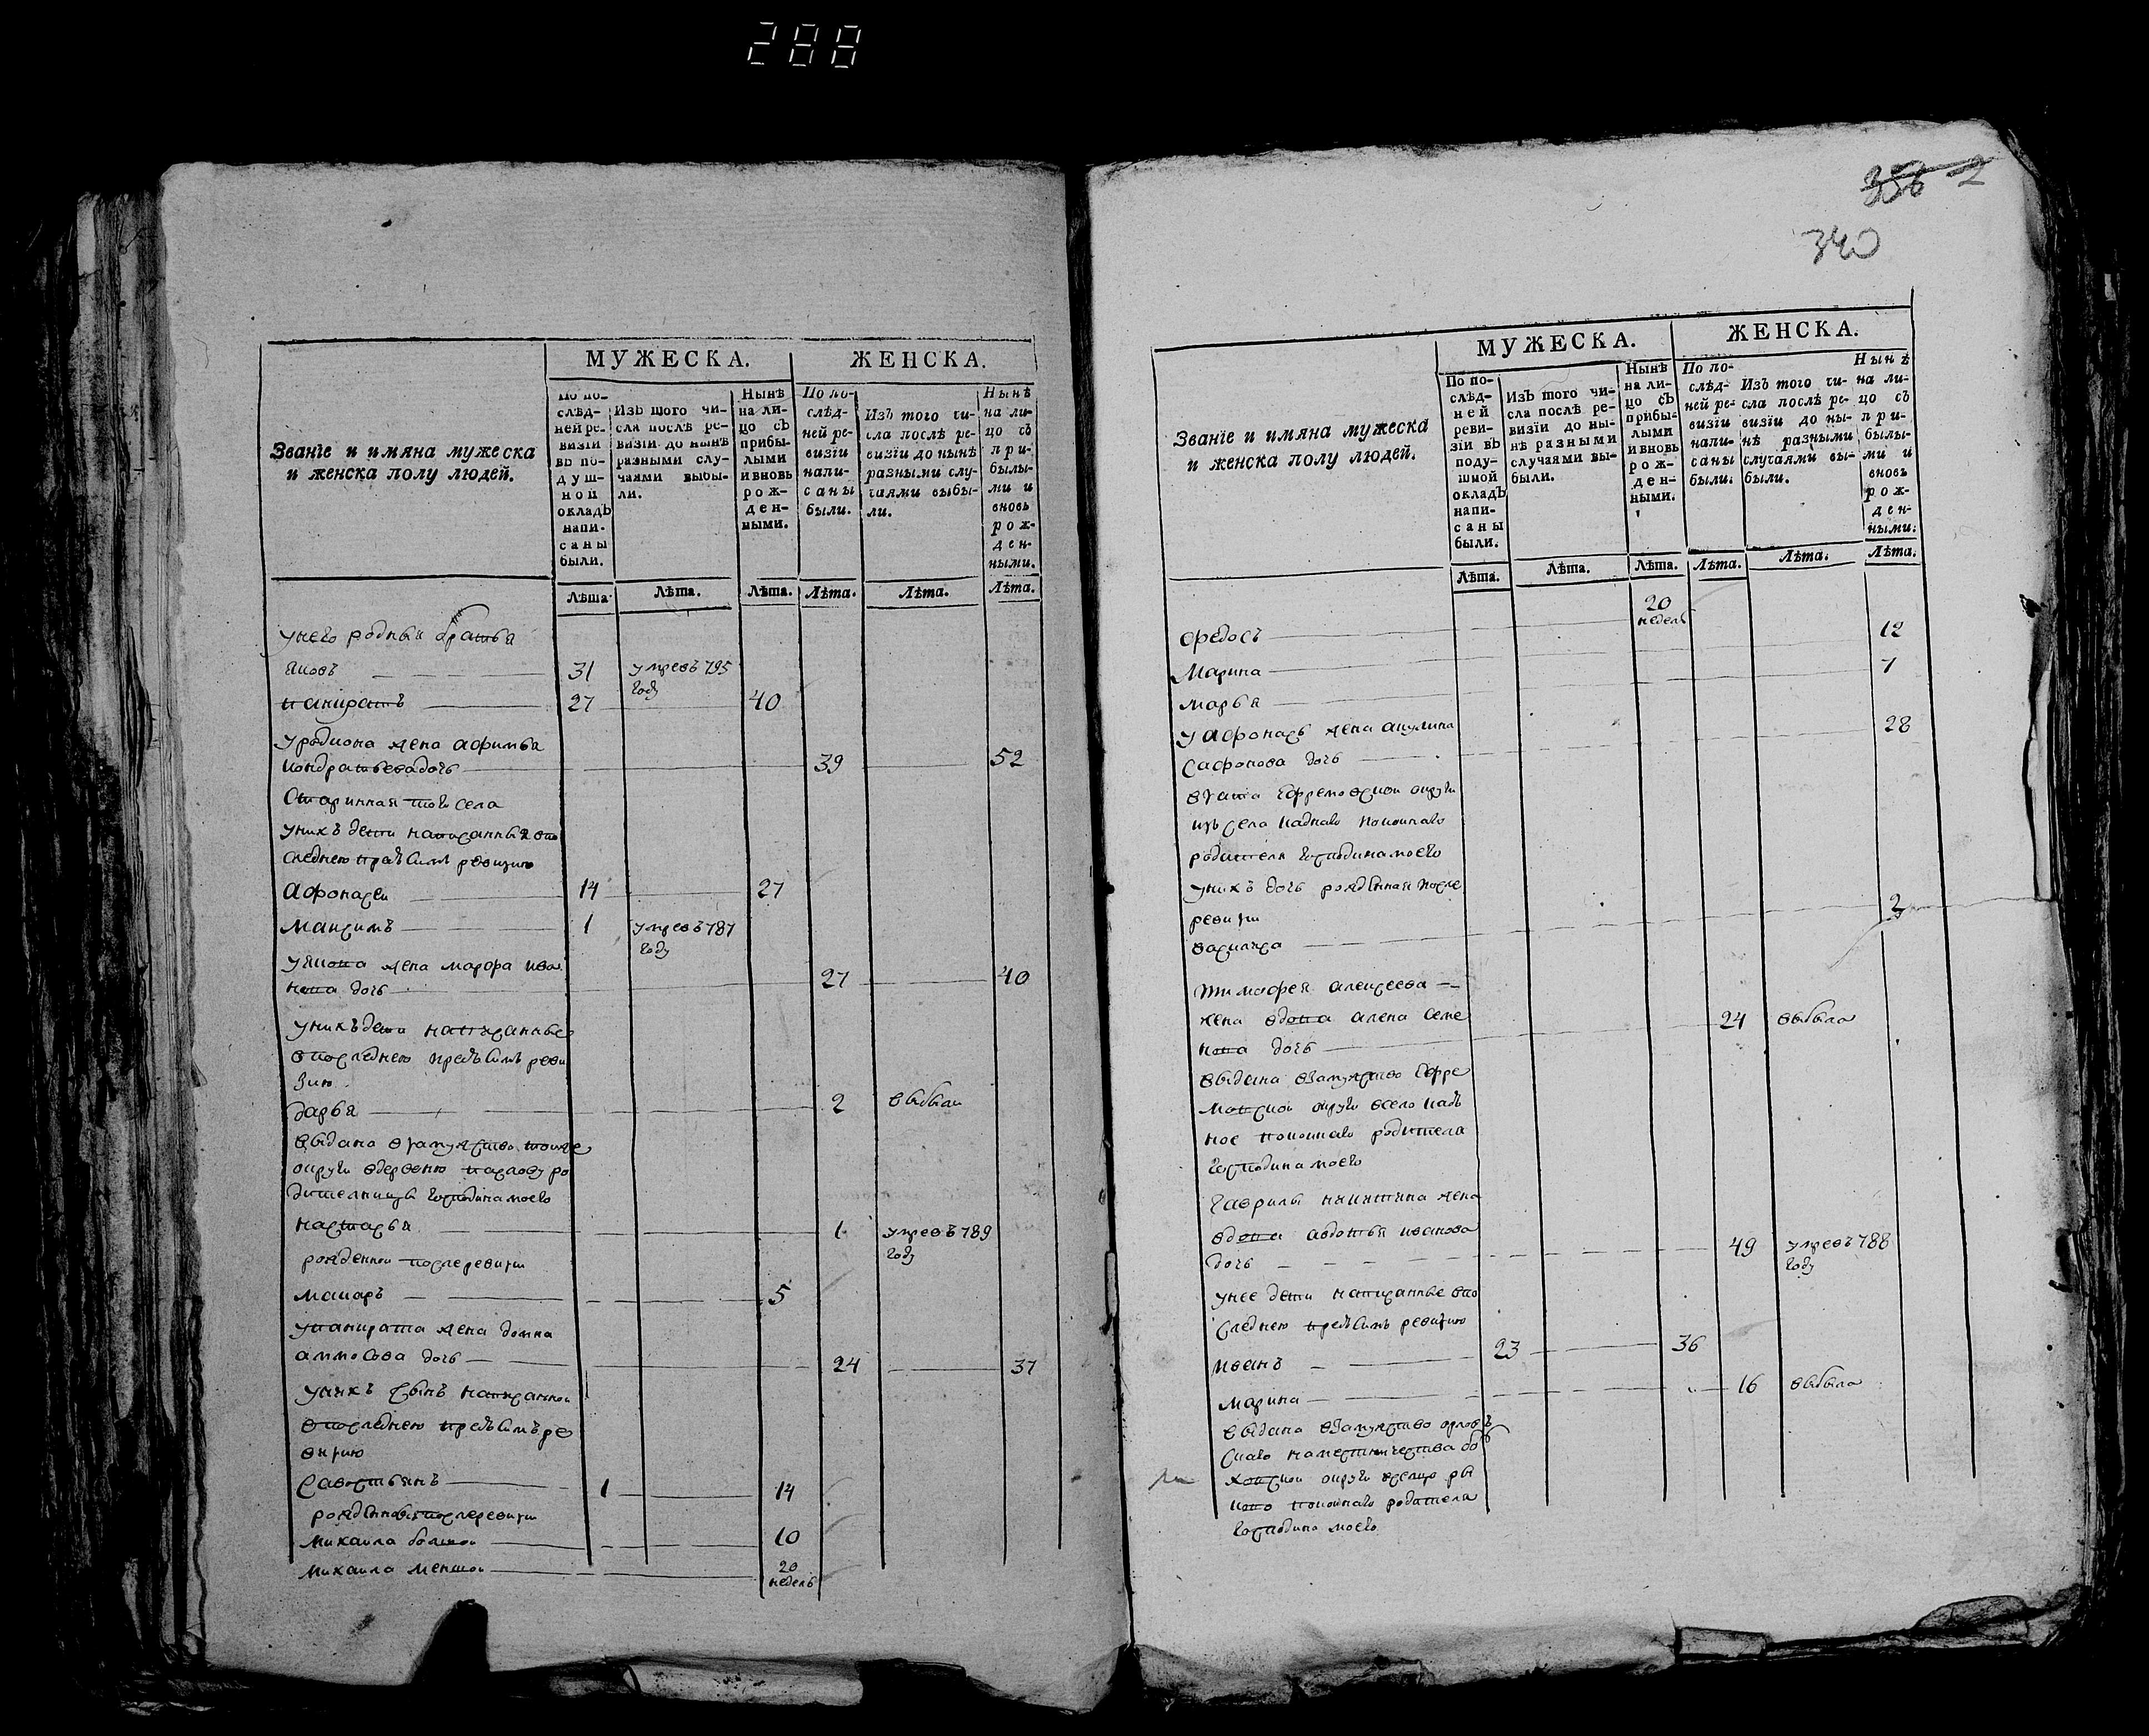 288
МУЖЕСКА. ЖЕНСКА.
Званїе и имяна мужеска
и женска полу людей.
По по-
слѣд-
ней ре-
визїи
въ по-
душ-
ной
окладъ
напи-
саны
были.
Изъ того чи-
сла послѣ ре-
визїи до нынѣ
разными слу-
чаями выбы-
ли.
Нынѣ
на ли-
цо съ
прибы-
лыми
и вновь
рож-
ден-
ными.
По по-
слѣд-
ней ре-
визїи
напи-
саны
были.
Изъ того чи-
сла послѣ ре-
визїи до нынѣ
разными слу-
чаями выбы-
ли.
Нынѣ
на ли-
цо съ
при-
былы-
ми и
вновь
рож-
ден-
ными.
Лѣта. Лѣта. Лѣта. Лѣта. Лѣта. Лѣта.
унего родныя братья
яковъ 31 умревъ 795
году
панкратъ 27 40
уродиона жена афимья
кондратьева дочь 39 52
Старинная того села
унихъ дети написанныя впо
следнею предъ симъ ревизию
Афонасеи 14 27
Максимъ 1 умревъ 787
году
уякова жена марфа ива
нова дочь 27 40
унихъ дети написанные
впоследнею предъ симъ реви
зию
дарья 2 выбыли
выдана взамужство тойже
округи вдеревню павлову ро
дителницы господина моего
настасья 1 умревъ 789
году
рожденной послеревизии
макаръ 5
упанкрата жена домна
аммосова дочь 24 37
унихъ сынъ написанной
впоследнею предъ симъ ре
визию
Савостьянъ 1 14
рожденныя послеревизии
михаила болшой 10
михаила меншой 20
недель
356 2
340
МУЖЕСКА. ЖЕНСКА.
Званїе и имяна мужеска
и женска полу людей.
По по-
слѣд-
ней
реви-
зїи въ
поду-
шной
окладъ
напи-
саны
были.
Изъ того чи-
сла послѣ ре-
визїи до ны-
нѣ разными
случаями вы-
были.
Нынѣ
на ли-
цо съ
прибы-
лыми
и вновь
рож-
ден-
ными.
По по-
слѣд-
ней ре-
визїи
напи-
саны
были.
Изъ того чи-
сла послѣ ре-
визїи до ны-
нѣ разными
случаями вы-
были.
Нынѣ
на ли-
цо съ
при-
былы-
ми и
вновь
рож-
ден-
ными.
Лѣта. Лѣта. Лѣта. Лѣта. Лѣта. Лѣта.
Федосъ 20
недель
Марина 12
марья 7
уафонасья жена акулина
Сафонова дочь 28
взята Ефремовской округи
изъ села покойнаго
родителя господина моего
унихъ дочь рожденная после
ревизии
василиса 2
тимофея алексеева
жена вдова алена семе
нова дочь 24 выбыла
выдана взамужство Ефре
мовской округи всело
покойнаго родителя
господина моего
Гаврилы никитина жена
вдова авдотья иванова
дочь 49 умревъ 788
году
унее дети написанные впо
следнею предъ симъ ревизию
иванъ 23 36
марина 16 выбыла
выдана взамужство орловъ
скаго наместничества бол
ховской округи
покойнаго родителя
господина моего